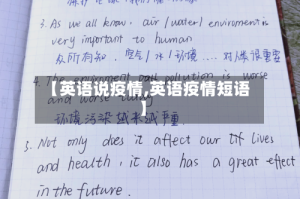 3. As we all know, air / water / enviroment is
very important to human
众所周知，空气/水/环境……对人很重要
【英语说疫情,英语疫情短语
】
4. The enviroment pollution is worse
and worse
环境污染越来越严重
5. Not only does it affect our life lives
and health, it also has a great effect
in the future.